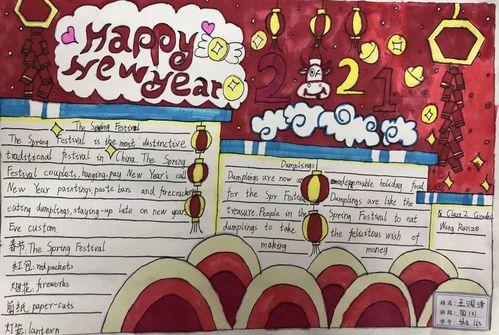 Happy
New Year
2021
The Spring Festival
The Spring Festival is the most distinctive
traditional festival in China. The Spring
Festival couplets, hanging, pay New Year's call
New Year paintings, paste bars and firecrackers
eating dumplings, staying-up late on new year
Eve custom.
春节: The Spring Festival
红包: red packets
烟花: fireworks
剪纸: paper-cuts
灯笼: lantern
Dumplings
Dumplings are now indispensable holiday food
for the Spr Festival Dumplings are like the
treasure. People in the Spring Festival to eat
dumplings to take the felicitous wish of
making money
Class 2
Wang Runze
姓名: 王润泽
班级:
学号: the 16s